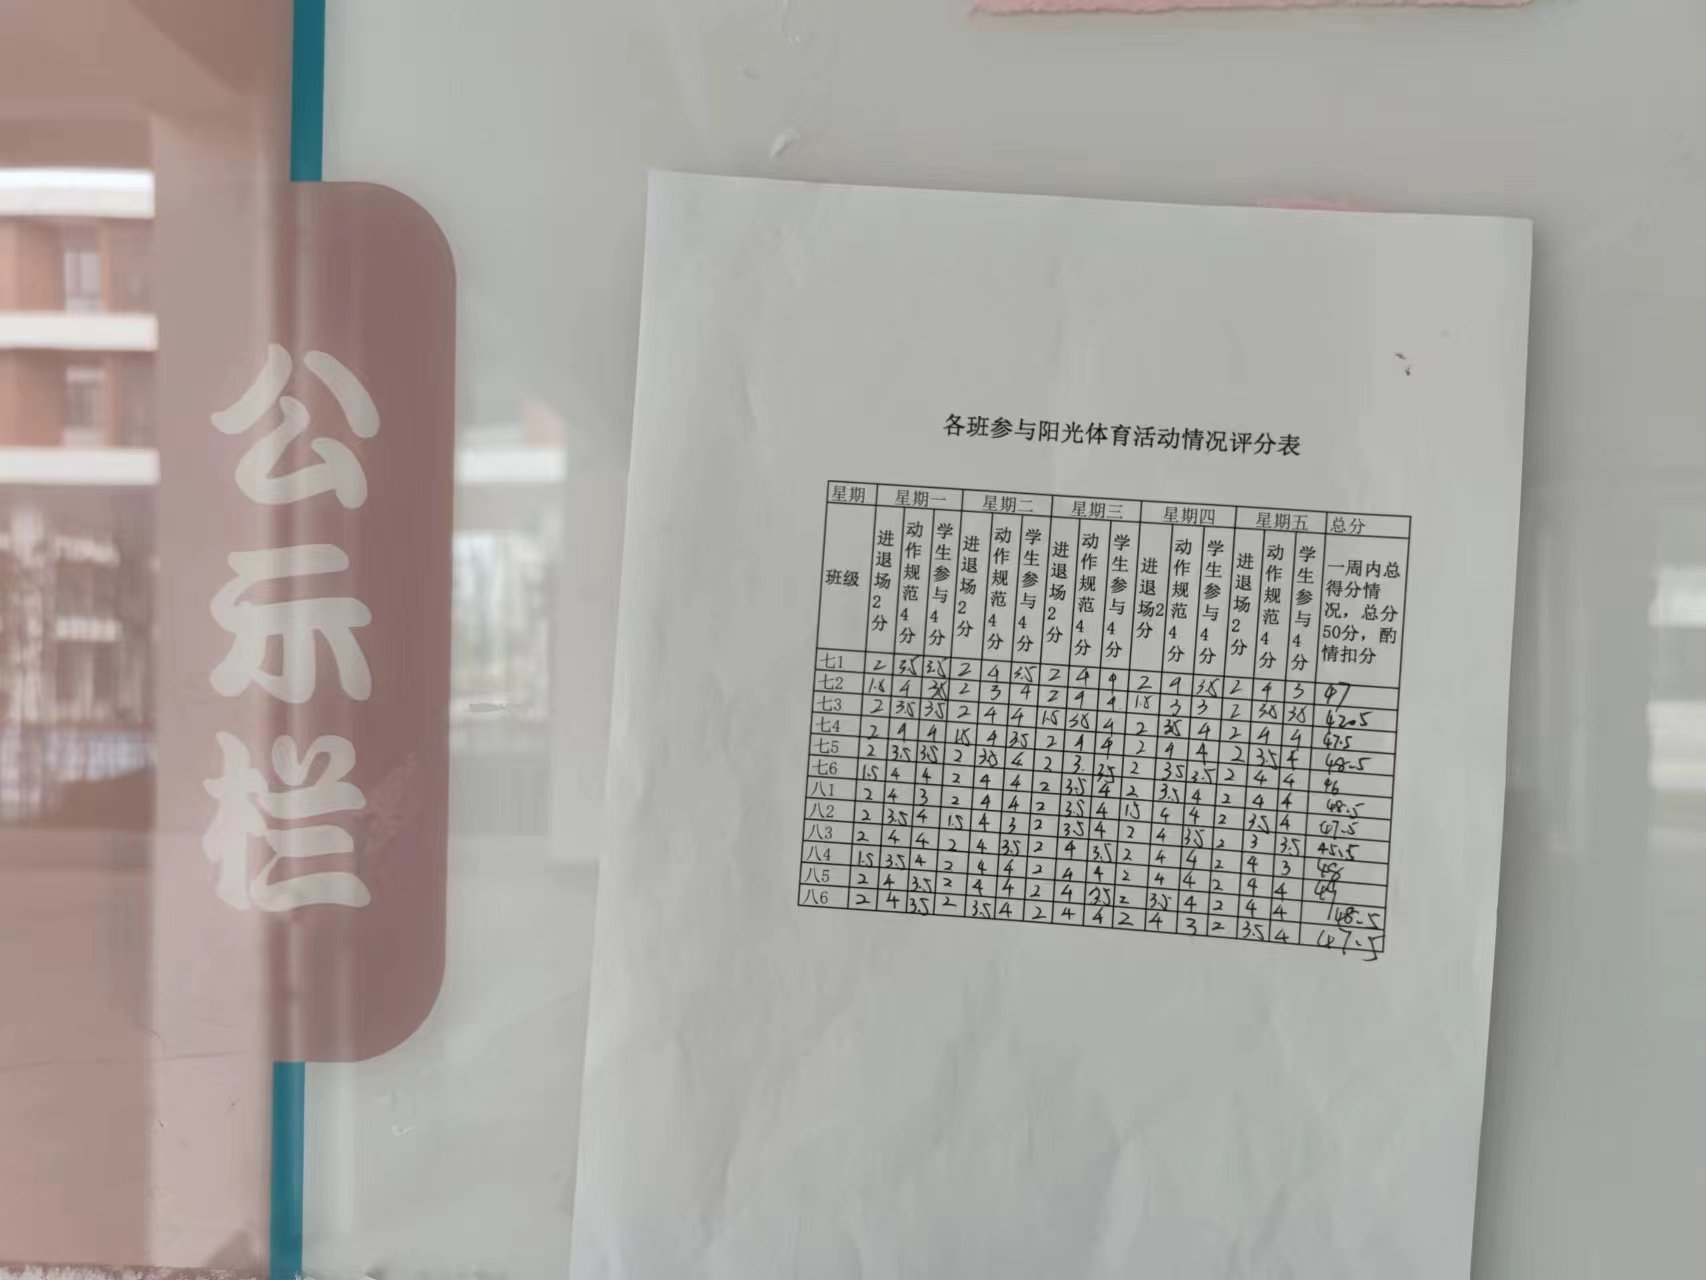 公示栏
各班参与阳光体育活动情况评分表
星期 星期一 星期二 星期三 星期四 星期五 总分
班级 进退场2分 动作规范4分 学生参与4分 进退场2分 动作规范4分 学生参与4分 进退场2分 动作规范4分 学生参与4分 进退场2分 动作规范4分 学生参与4分 进退场2分 动作规范4分 学生参与4分 一周内总得分情况，总分50分，酌情扣分
七1 2 3.5 3.5 2 4 3.5 2 4 4 2 4 3.5 2 4 3 47
七2 1.5 4 3.5 2 3 4 2 4 4 1.5 3 3 2 3.5 3.5 42.5
七3 2 3.5 3.5 2 4 4 1.5 3.5 4 2 3.5 4 2 4 4 47.5
七4 2 4 4 1.5 4 3.5 2 4 4 2 4 4 2 3.5 4 48.5
七5 2 3.5 3.5 2 3.5 4 2 3 3.5 2 3.5 3.5 2 4 4 46
七6 1.5 4 4 2 4 4 2 3.5 4 2 3.5 4 2 4 4 48.5
八1 2 4 3 2 4 4 2 3.5 4 1.5 4 4 2 3.5 4 47.5
八2 2 3.5 4 1.5 4 3 2 3.5 4 2 4 3.5 2 3 3.5 45.5
八3 2 4 4 2 4 3.5 2 4 3.5 2 4 4 2 4 3 48
八4 1.5 3.5 4 2 4 4 2 4 4 2 4 4 2 4 4 49
八5 2 4 3.5 2 4 4 2 4 3.5 2 3.5 4 2 4 4 48.5
八6 2 4 3.5 2 3.5 4 2 4 4 2 4 3 2 3.5 4 47.5